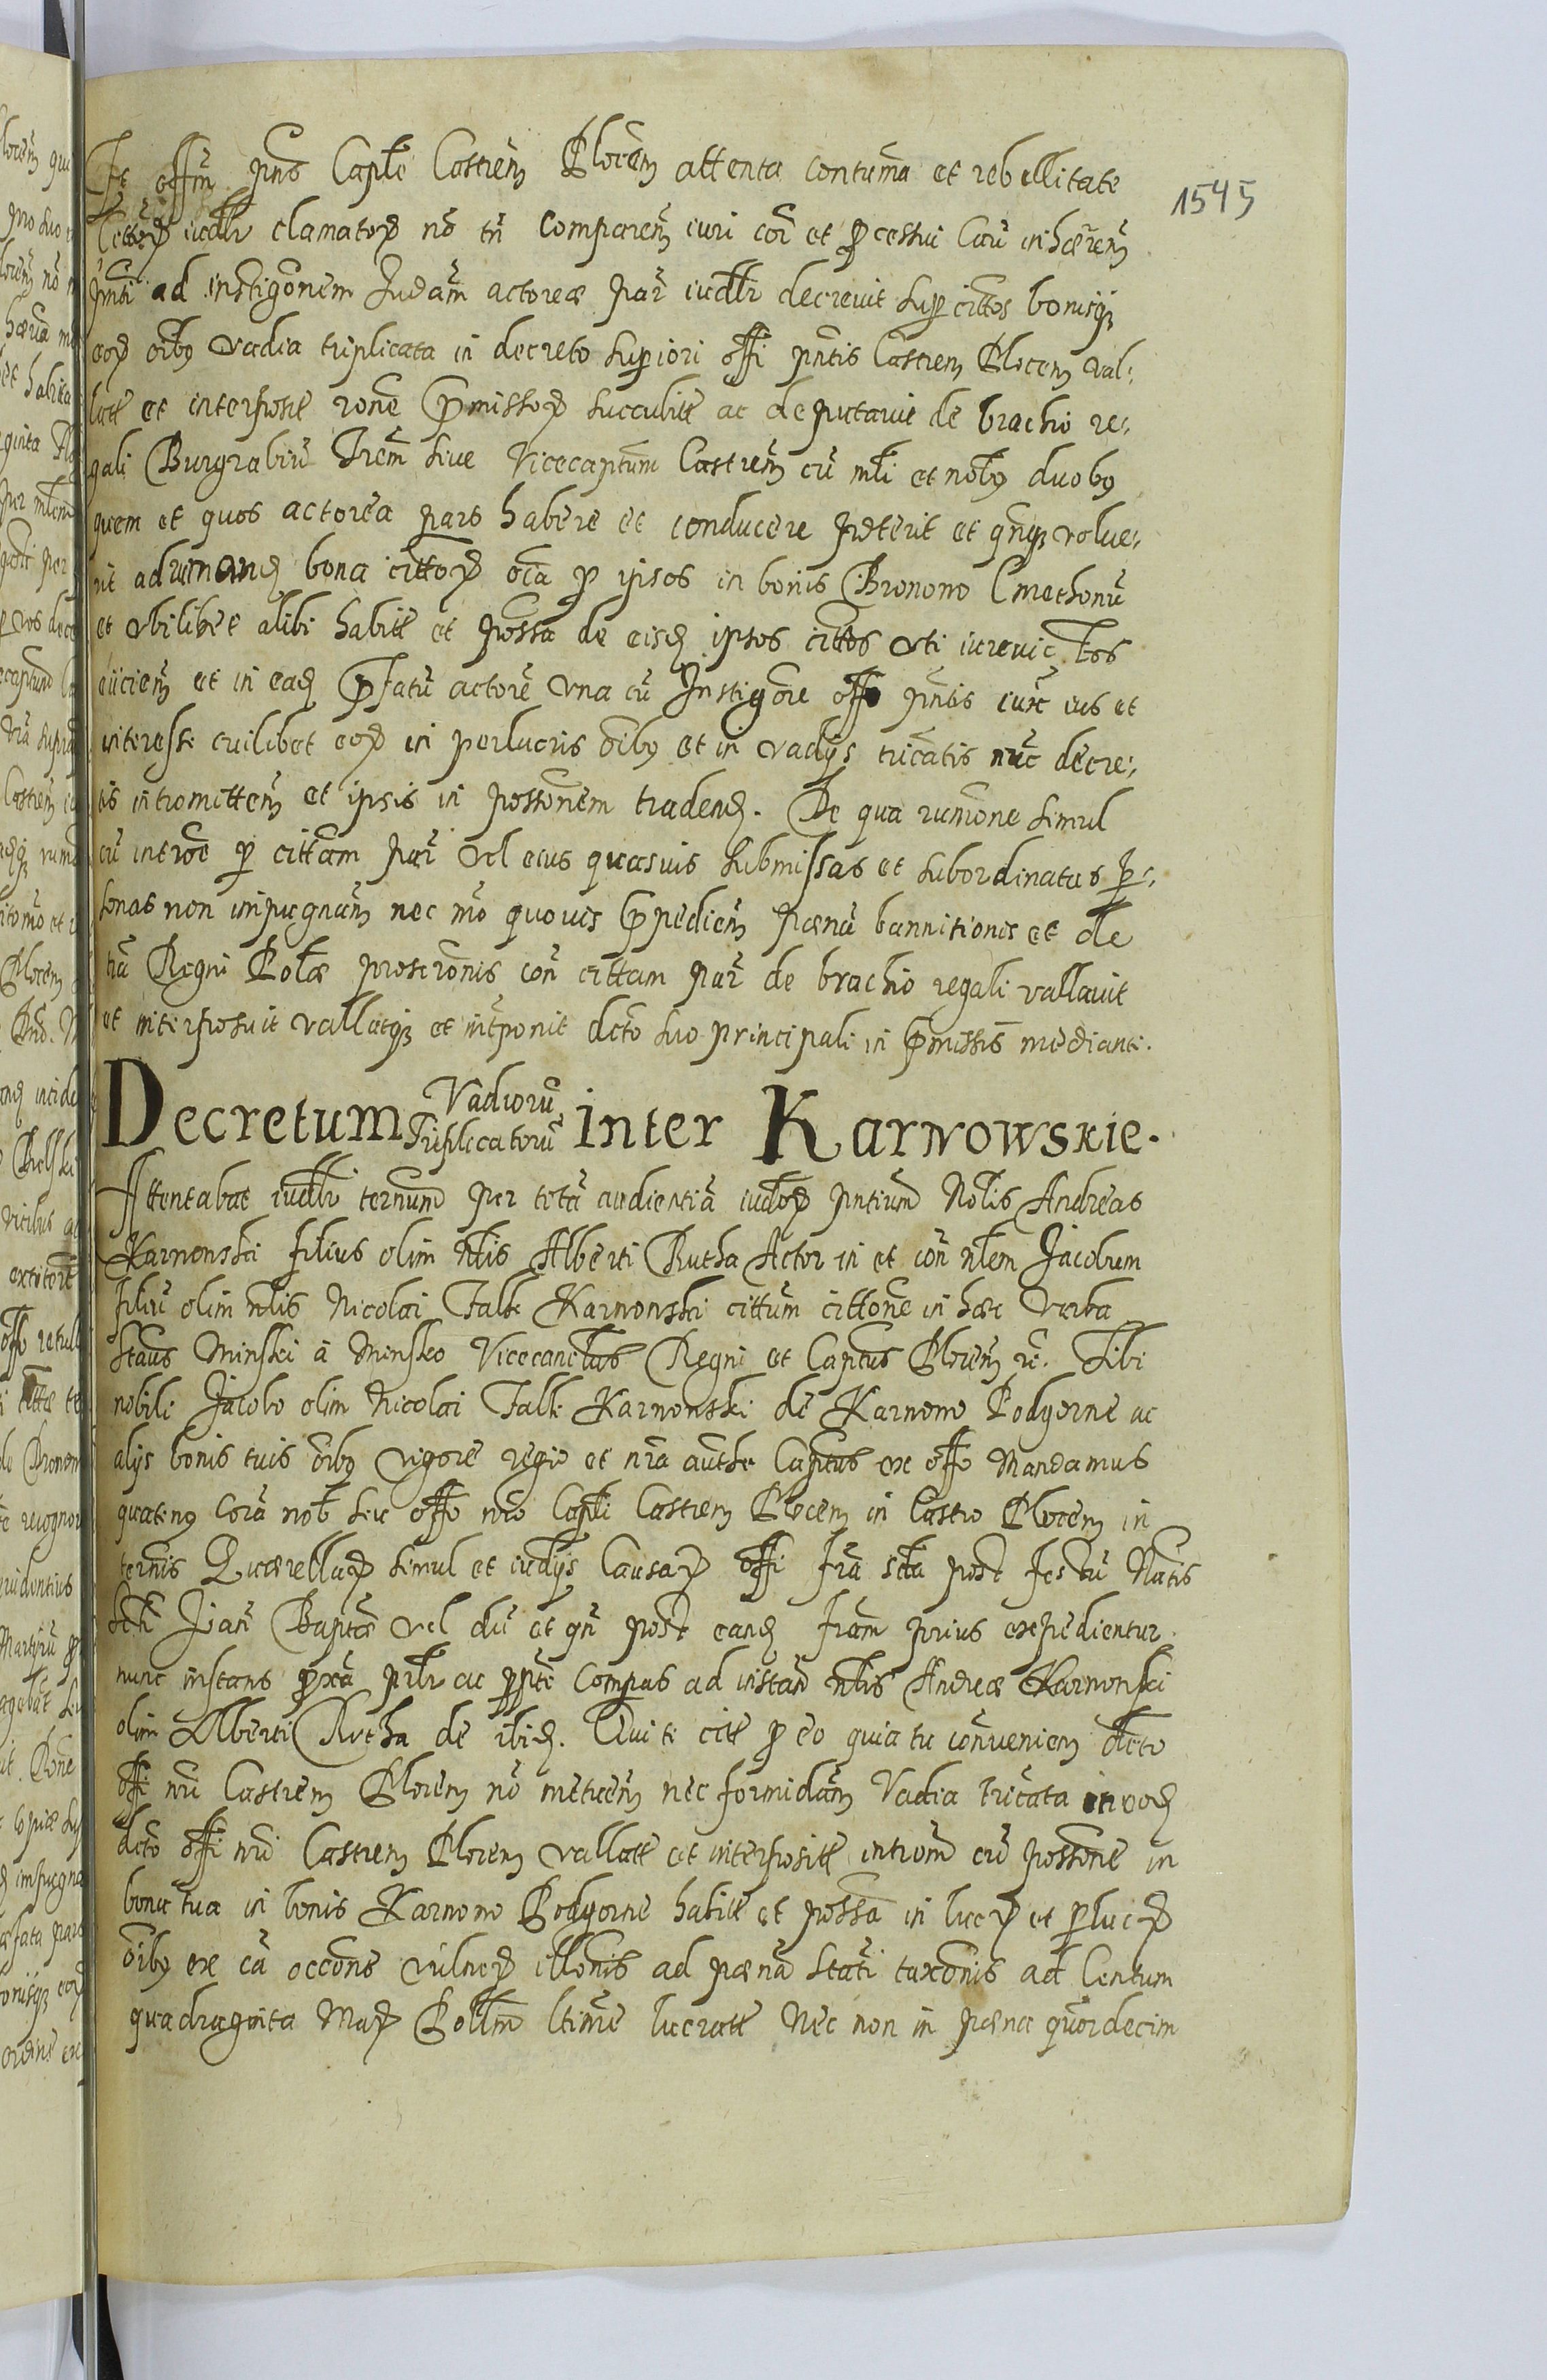 1545
Et offm pns Caple Castren Plocen attenta contuma et rebellitate
Cittor iudlr clamator no tn comparen iuri cor et processui Cau inhæren
pnti ad instigonem Judam actoreæ par iudlr decrevit super cittos bonisq
eor oibus vadia triplicata in decreto superiori offi pntis Castren Plocen val-
latt et interposit rone præmissor succubitt ac deputavit de brachio re-
gali Burgrabiu Tren sive Vicecaptum Castren cu mli et nobus duobus
quem et quos actorea pars habere et conducere poterit et qnq volue-
rit ad rumand bona cittor oia per ipsos in bonis Bronowo Cmethonu
et ubilibet alibi habitt et possa de eisd ipsos cittos uti iurevictos
eiicien et in ead præfatu actore una cu Instigore offo pntis iuxt ius et
interesse cuilibet eor in perlucris oibus et in vadijs tricatis nuc decre-
tis intromitten et ipsis in possonem tradend. De qua rumone simul
cu introe per cittam par vel eius quasvis submissas et subordinatas per-
sonas non impugnan nec mo quovis præpedien pœna bannitionis et de
tra Regni Polæ proscronis con cittam par de brachio regali vallavit
et interposuit vallatq et intponit dcto suo principali in præmissis mediante.
Decretum Vadioru Triplicatoru inter Karnowskie.
Attentabat iudlr ternum per tota audientia iudior pntium Nobilis Andreas
Karnowski filius olim nlis Alberti Rutha Actor in et con nlem Jacobum
filiu olim nlis Nicolai Falk Karnowski cittum cittone in hæc verba
Staus Minski a Minsko Vicecanclus Regni et Captus Plocen re. Tibi
nobili Jacobo olim Nicolai Falk Karnowski de Karnowo Podgorne ac
alijs bonis tuis oibus vigore regio et nra authe Captus ex offo Mandamus
quatenus cora nob seu offo nro Capli Castren Plocen in Castro Plocen in
ternis Querellar simul et iudijs Causar offi fra scda post festu Natis
Scti Joan Baptæ vel du et qn post eand fram prius expedientur
nunc instans proxa prlr ac prpte Compas ad instan nlis Andreæ Karnowski
olim Alberti Rutha de ibid. Qui te citt pro eo quia tu contravenien dcto
offi nri Castren Plocen no metuen nec formidan Vadia tricata in eod
dcto offi nri Castren Plocen vallatt et interpositt introm cu possone in
bona tua in bonis Karnowo Podgorne habitt et possa in lucr et perlucr
oibus ex ca occone vulner illonis ad pœna Stati taxonis ad Centum
quadraginta Mar Pollm ltime lucratt Nec non in pœna quordecim